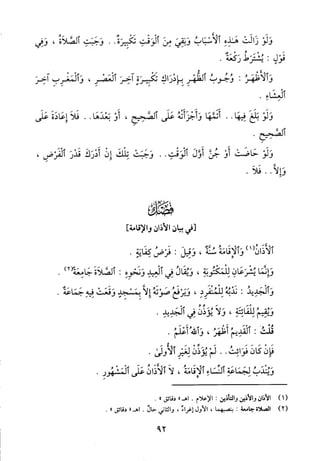 وَلَوْ زَالَتْ هَـٰذِهِ الْأَسْبَابُ وَبَقِيَ مِنَ الْوَقْتِ تَكْبِيرَةٌ.. وَجَبَتِ الصَّلَاةُ ، وَفِي
قَوْلٍ : يُشْتَرَطُ رَكْعَةٌ .
وَالْأَظْهَرُ : وُجُوبُ الظُّهْرِ بِإِدْرَاكِ تَكْبِيرَةٍ آخِرَ الْعَصْرِ ، وَالْمَغْرِبِ آخِرَ
الْعِشَاءِ .
وَلَوْ بَلَغَ فِيهَا.. أَتَمَّهَا وَأَجْزَأَتْهُ عَلَى الصَّحِيحِ ، أَوْ بَعْدَهَا.. فَلَا إِعَادَةَ عَلَى
الصَّحِيحِ .
وَلَوْ حَاضَتْ أَوْ جُنَّ أَوَّلَ الْوَقْتِ.. وَجَبَتْ تِلْكَ إِنْ أَدْرَكَ قَدْرَ الْفَرْضِ ،
وَإِلَّا.. فَلَا .
فَصْلٌ
[فِي بَيَانِ الْأَذَانِ وَالْإِقَامَةِ]
الْأَذَانُ(١) وَالْإِقَامَةُ سُنَّةٌ ، وَقِيلَ : فَرْضُ كِفَايَةٍ .
وَإِنَّمَا يُشْرَعَانِ لِلْمَكْتُوبَةِ ، وَيُقَالُ فِي الْعِيدِ وَنَحْوِهِ : الصَّلَاةَ جَامِعَةً(٢) .
وَالْجَدِيدُ : نَدْبُهُ لِلْمُنْفَرِدِ ، وَيَرْفَعُ صَوْتَهُ إِلَّا بِمَسْجِدٍ وَقَعَتْ فِيهِ جَمَاعَةٌ .
وَيُقِيمُ لِلْفَائِتَةِ ، وَلَا يُؤَذِّنُ فِي الْجَدِيدِ .
قُلْتُ : الْقَدِيمُ أَظْهَرُ ، وَاللهُ أَعْلَمُ .
فَإِنْ كَانَ فَوَائِتُ.. لَمْ يُؤَذِّنْ لِغَيْرِ الْأُولَى .
وَيُنْدَبُ لِجَمَاعَةِ النِّسَاءِ الْإِقَامَةُ ، لَا الْأَذَانُ عَلَى الْمَشْهُورِ .
(١) الأذان والأذين والتأذين : الإعلام . اهـ « دقائق » .
(٢) الصلاة جامعة : بنصبهما ، الأول إغراءً ، والثاني حالٌ . اهـ « دقائق » .
٩٢